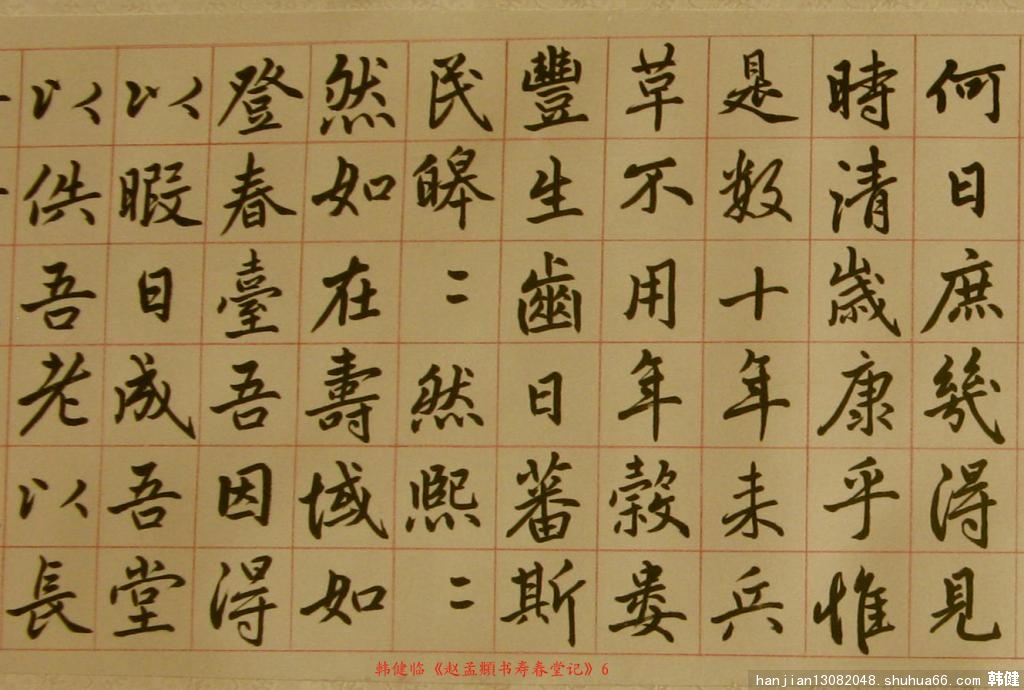 何日庶幾得見
時清歲康乎惟
是数十年来兵
草不用年穀婁
豐生齒日蕃斯
民皞二然熙二
然如在壽域如
登春臺吾因得
以暇日成吾堂
以供吾老以長
韩健临《赵孟頫书寿春堂记》6
hanjian13082048.shuhua66.com 韩健